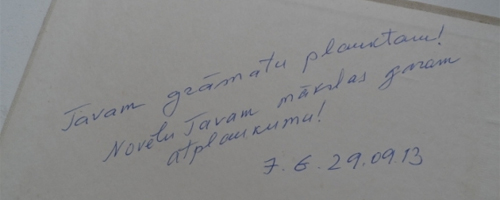 Tavam grāmatu plauktam!
Novēlu Tavam mākslas garam
atplaukumu!
7. G. 29.09.13